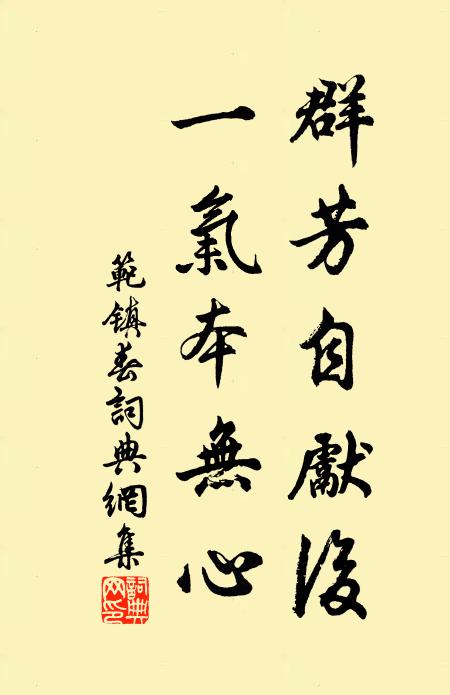 群芳自獻後
一氣本無心
範鎮春詞典網集
詞典网印